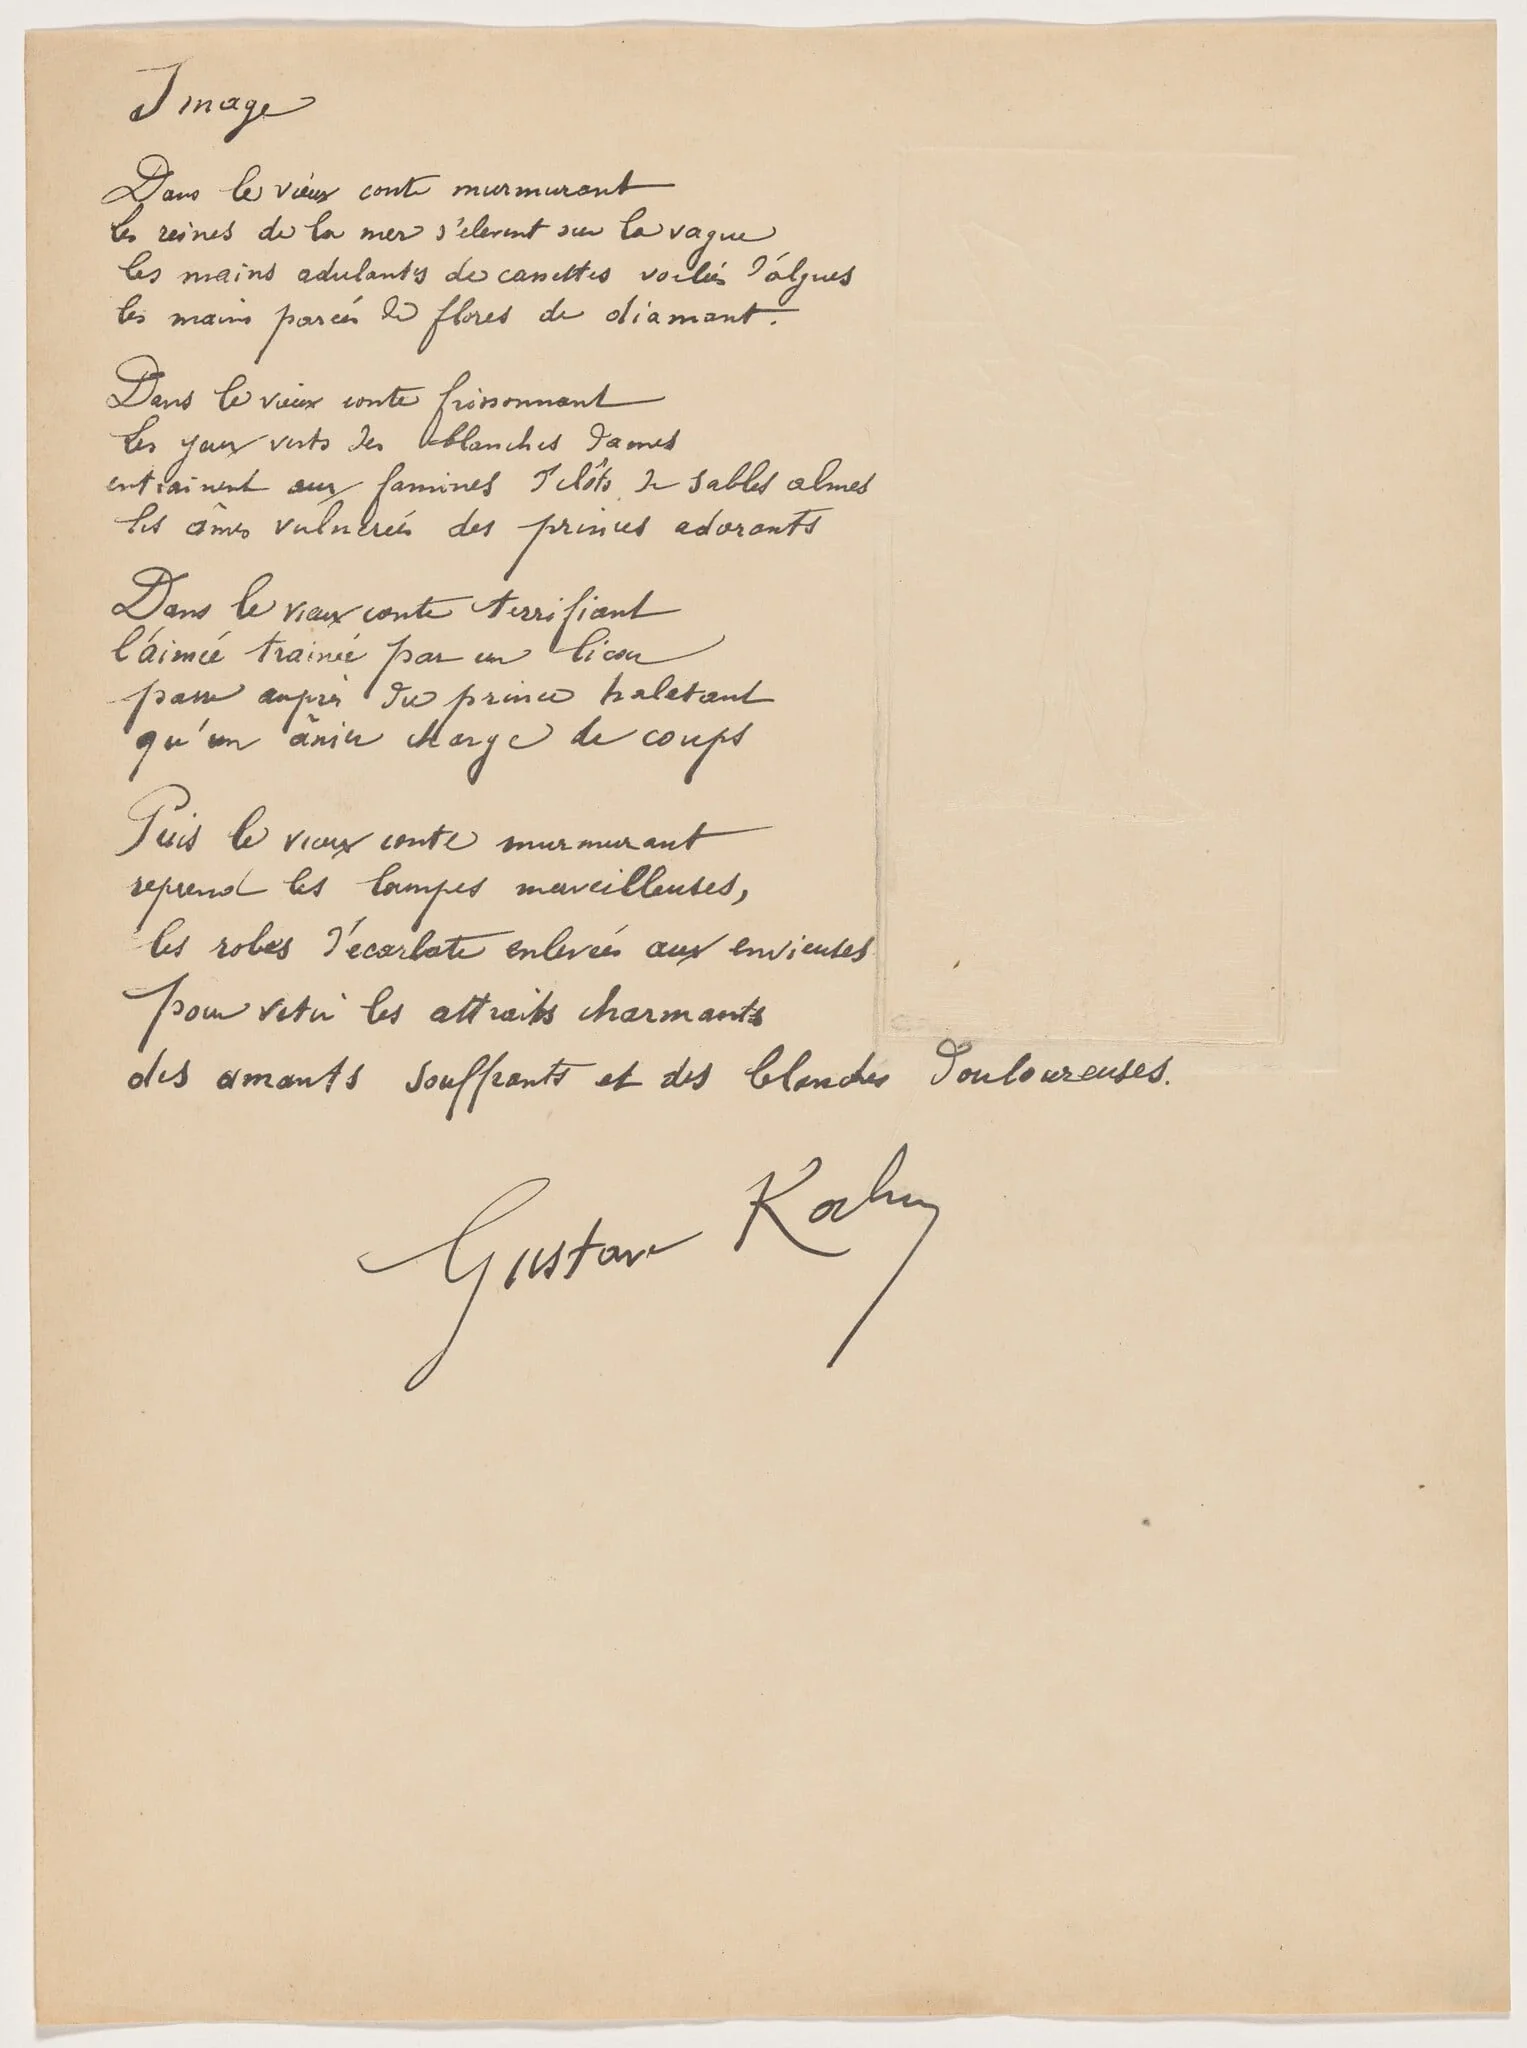 Image
Dans le vieux conte murmurant
les reines de la mer s'elevent sur la vague
les mains adulantes de cassettes voilées d'algues
les mains parées de flores de diamant.
Dans le vieux conte frissonnant
les yeux verts des blanches dames
entrainent aux famines d'ilôts de sables almes
les âmes vulnerées des princes adorants
Dans le vieux conte terrifiant
l'aimée trainée par un licou
passe auprès du prince haletant
qu'un ânier charge de coups
Puis le vieux conte murmurant
reprend les lampes merveilleuses,
les robes d'écarlate enlevées aux envieuses
pour vetir les attraits charmants
des amants souffrants et des blondes douloureuses.
Gustave Kahn